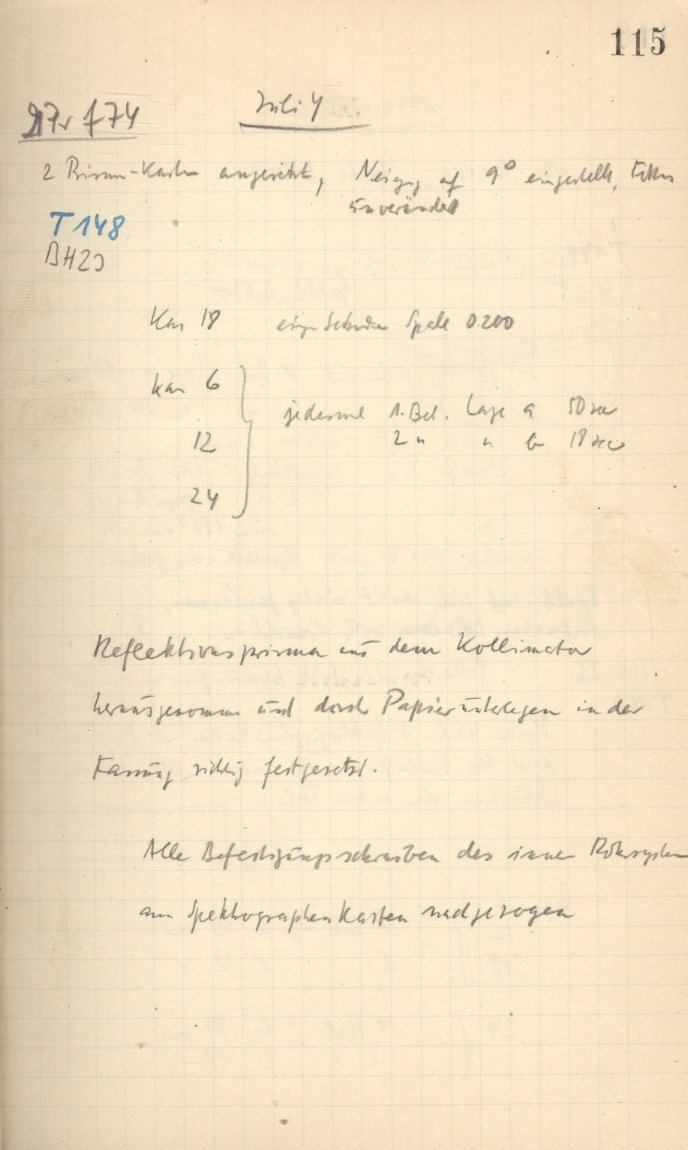 115
Juli 4
f 74
2 Prismen-Kasten angesetzt, Neigung auf 9° eingestellt, Fokus
unverändert
T 148
BH23
Kas 18 Spalt 0.200
Kas 6
jedesmal 1. Bel. Lage a 50 sec
12 2 " " b 18 sec
24
Reflektionsprisma aus dem Kollimator
herausgenommen und durch Papierunterlegen in der
Fassung richtig festgesetzt.
Alle Befestigungsschrauben des innen Rohrsystem
am Spektrographenkasten nachgezogen